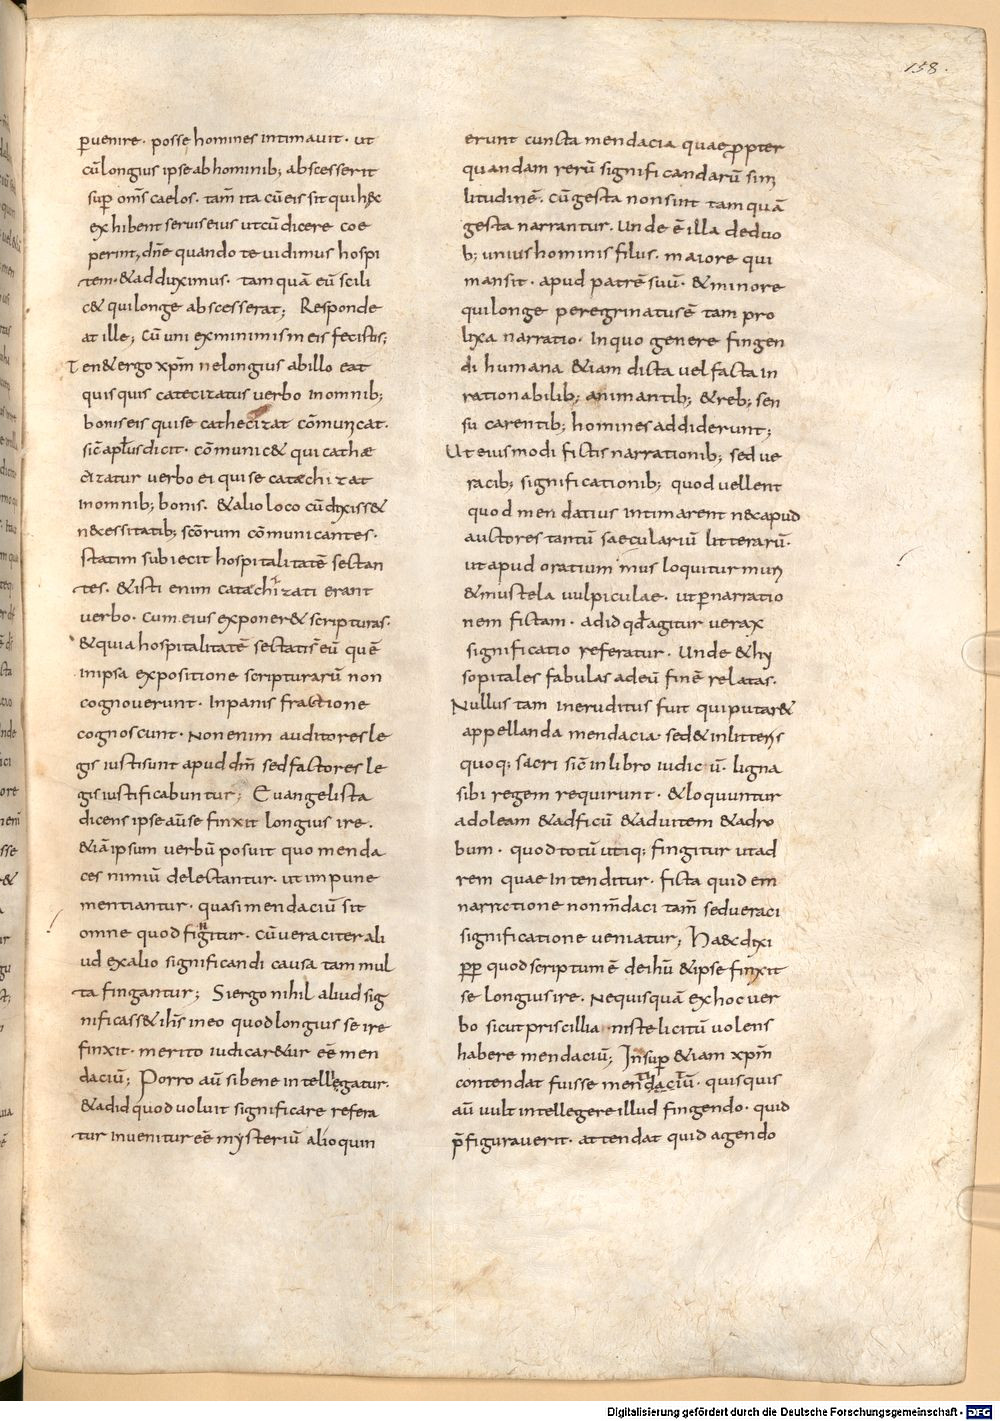 158.
ꝑuenire · posse homines intimauit · ut
cū longius ipse ab hominib; abscesserit
suꝑ om̅s caelos · tam̅ ita cū eis sit qui h&c
exhibent seruis eius ut cū dicere coe
perint, dn̅e quando te uidimus hospi
tem · & adduximus · tam quā eū scili
c& qui longe abscesserat; Responde
at ille; Cū uni ex minimis meis fecistis;
Ten& ergo xp̅m ne longius ab illo eat
quis quis catecizatus uerbo in omnib;
bonis eis qui se cathecizat cōmunicat.
sic̅ apl̅us dicit · cōmunic& qui cathæ
cizatur uerbo ei qui se catæchizat
in omnib; bonis. & alio loco cū dixiss&
n&cessitatib; sc̅orum cōmunicantes ·
statim subiecit hospitalitatē sectan
tes. & isti enim catæchizati erant
uerbo · cum eius exponer& scripturas.
& quia hospitalitatē sectatis eū quē
in ipsa expositione scripturarū non
cognouerunt · In panis fractione
cognoscunt · Non enim auditores le
gis iusti sunt apud dm̅ sed factores le
gis iustificabuntur; Euangelista
dicens ipse au̅ se finxit longius ire.
& iā ipsum uerbū posuit quo menda
ces nimiū delectantur · ut impune
mentiantur · quasi mendaciū sit
omne quod fingitur · Cū ueraciter ali
ud ex alio significandi causa tam mul
ta fingantur; Si ergo nihil aliud sig
nificass& ih̅s in eo quod longius se ire
finxit · merito iudicar&ur ee̅ men
daciū; Porro au̅ si bene intellegatur.
& ad id quod uoluit significare refera
tur inuenitur ee̅ mysteriū alioquin
erunt cuncta mendacia quae ꝓpter
quandam rerū significandarū simi
litudinē. Cū gesta non sint tam quā
gesta narrantur. Unde ē illa de duo
b; unius hominis filiis · maiore qui
mansit · apud patrē suū · & minore
qui longe peregrinatus ē tam pro
lixa narratio · In quo genere fingen
di humana &iam dicta uel facta in
rationabilib; animantib; & reb; sen
su carentib; homines addiderunt;
Ut eiusmodi fictis narrationib; sed ue
racib; significationib; quod uellent
quod mendatius intimarent n&c apud
auctores tantū saeculariū litterarū ·
ut apud oratium mus loquitur muri
& mustela uulpiculae · ut ꝑ narratio
nem fictam · ad id qd̅ agitur uerax
significatio referatur · Unde & hy
sopitales fabulas ad eū finē relatas.
Nullus tam ineruditus fuit qui putar&
appellanda mendacia · sed & in litteris
quoq; sacri sic̅ in libro iudicū · ligna
sibi regem requirunt · & loquuntur
ad oleam & ad ficū & ad uitem & ad ro
bum · quod totū utiq; fingitur ut ad
rem quae intenditur · ficta quidem
narrctione non m̅daci tam̅ sed ueraci
significatione ueniatur; Haec dixi
ꝓꝑ quod scriptum ē de ih̅u & ipse finxit
se longius ire. Ne quisquā ex hoc uer
bo sicut priscilli anniste licitū uolens
habere mendaciū; Insuꝑ &iam xp̅m
contendat fuisse mendaciū · quis quis
au̅ uult intellegere illud fingendo · quid
p̅figurauerit · attendat quid agendo
Digitalisierung gefördert durch die Deutsche Forschungsgemeinschaft - DFG